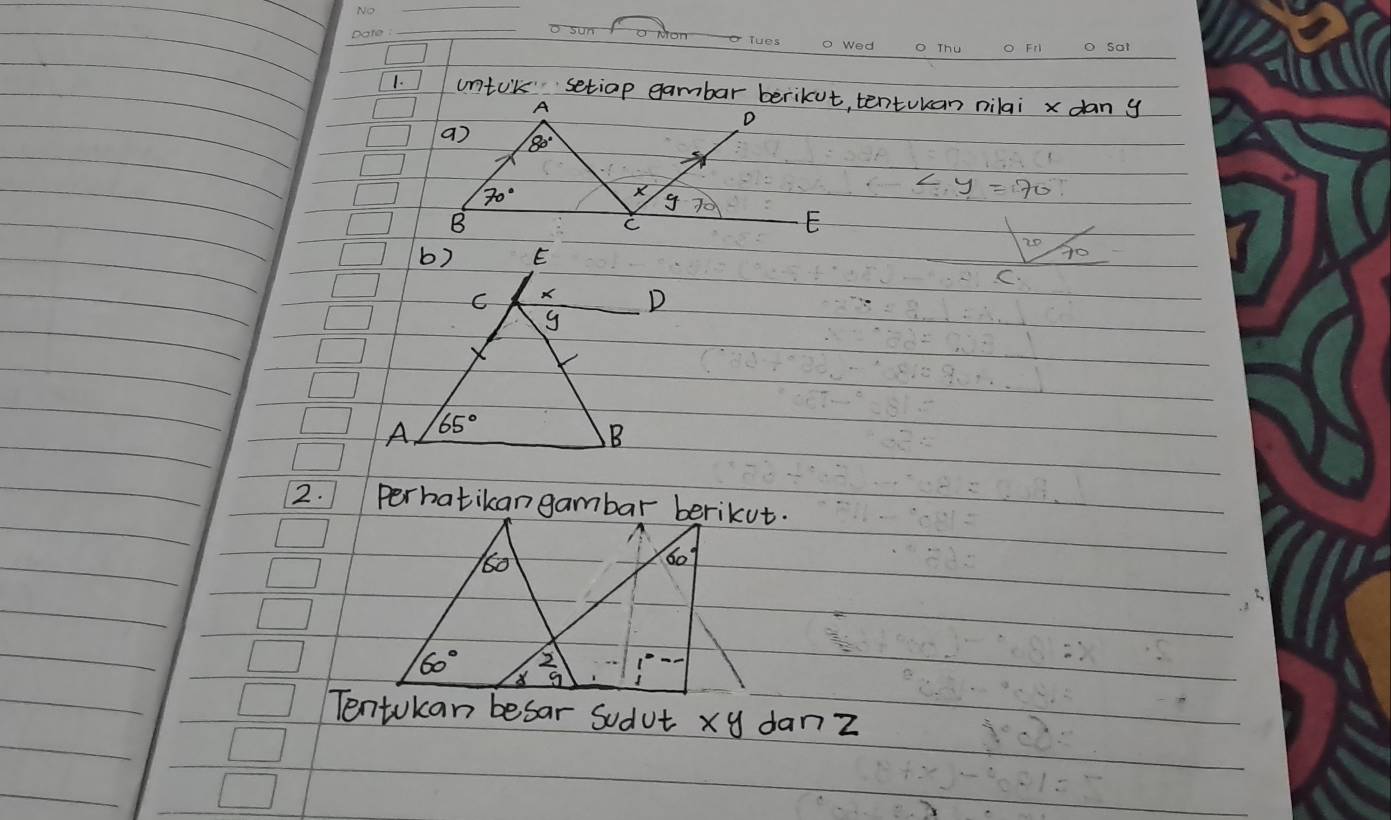 No
Date :
Sun Mon Tues Wed Thu Fri Sat
1. untuk setiap gambar berikut, tentukan nilai x dan y
a) A D
80°
70° x y 70
B C E
∠ y = 70
20 70
C
b) E
C x D
y
A 65° B
2. Perhatikan gambar berikut.
60 60°
60° x z y
Tentukan besar sudut x y dan z